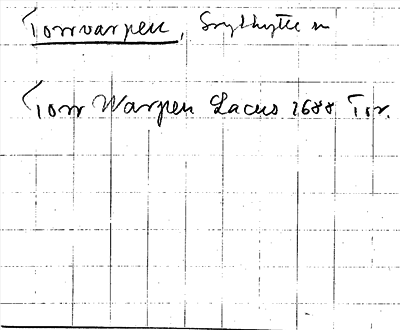 Torrvarpen, Grythytte sn
Torr Warpen Lacus 1688 Tor.